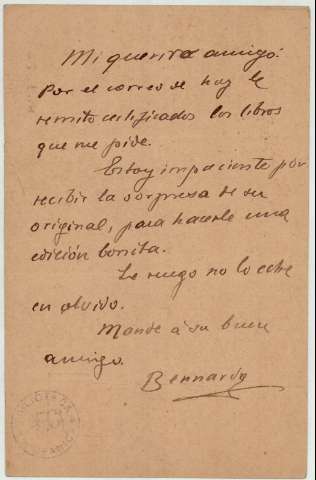 Mi querido amigo:
Por el correo de hoy le
remito certificados los libros
que me pide.
Estoy impaciente por
recibir la sorpresa de su
original, para hacerle una
edición bonita.
Le ruego no lo eche
en olvido.
Mande á su buen
amigo.
Bernardo